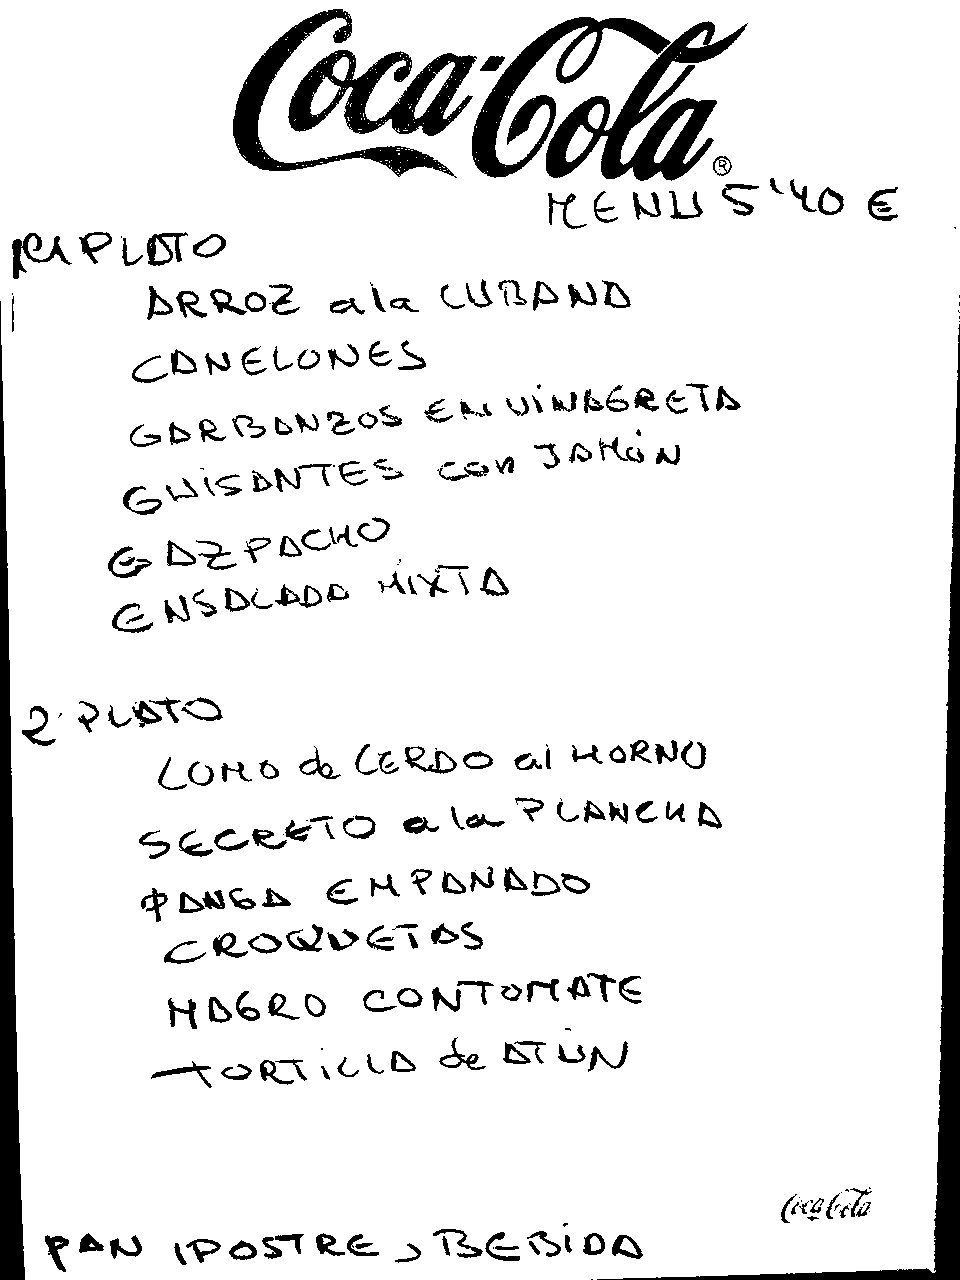 Coca-Cola®
MENU 5'40 €
1er PLATO
ARROZ a la CUBANA
CANELONES
GARBANZOS EN VINAGRETA
GUISANTES con JAMÓN
GAZPACHO
ENSALADA MIXTA
2º PLATO
LOMO de CERDO al HORNO
SECRETO a la PLANCHA
PANGA EMPANADO
CROQUETAS
MAGRO CON TOMATE
TORTILLA de ATÚN
Coca-Cola
PAN , POSTRE , BEBIDA